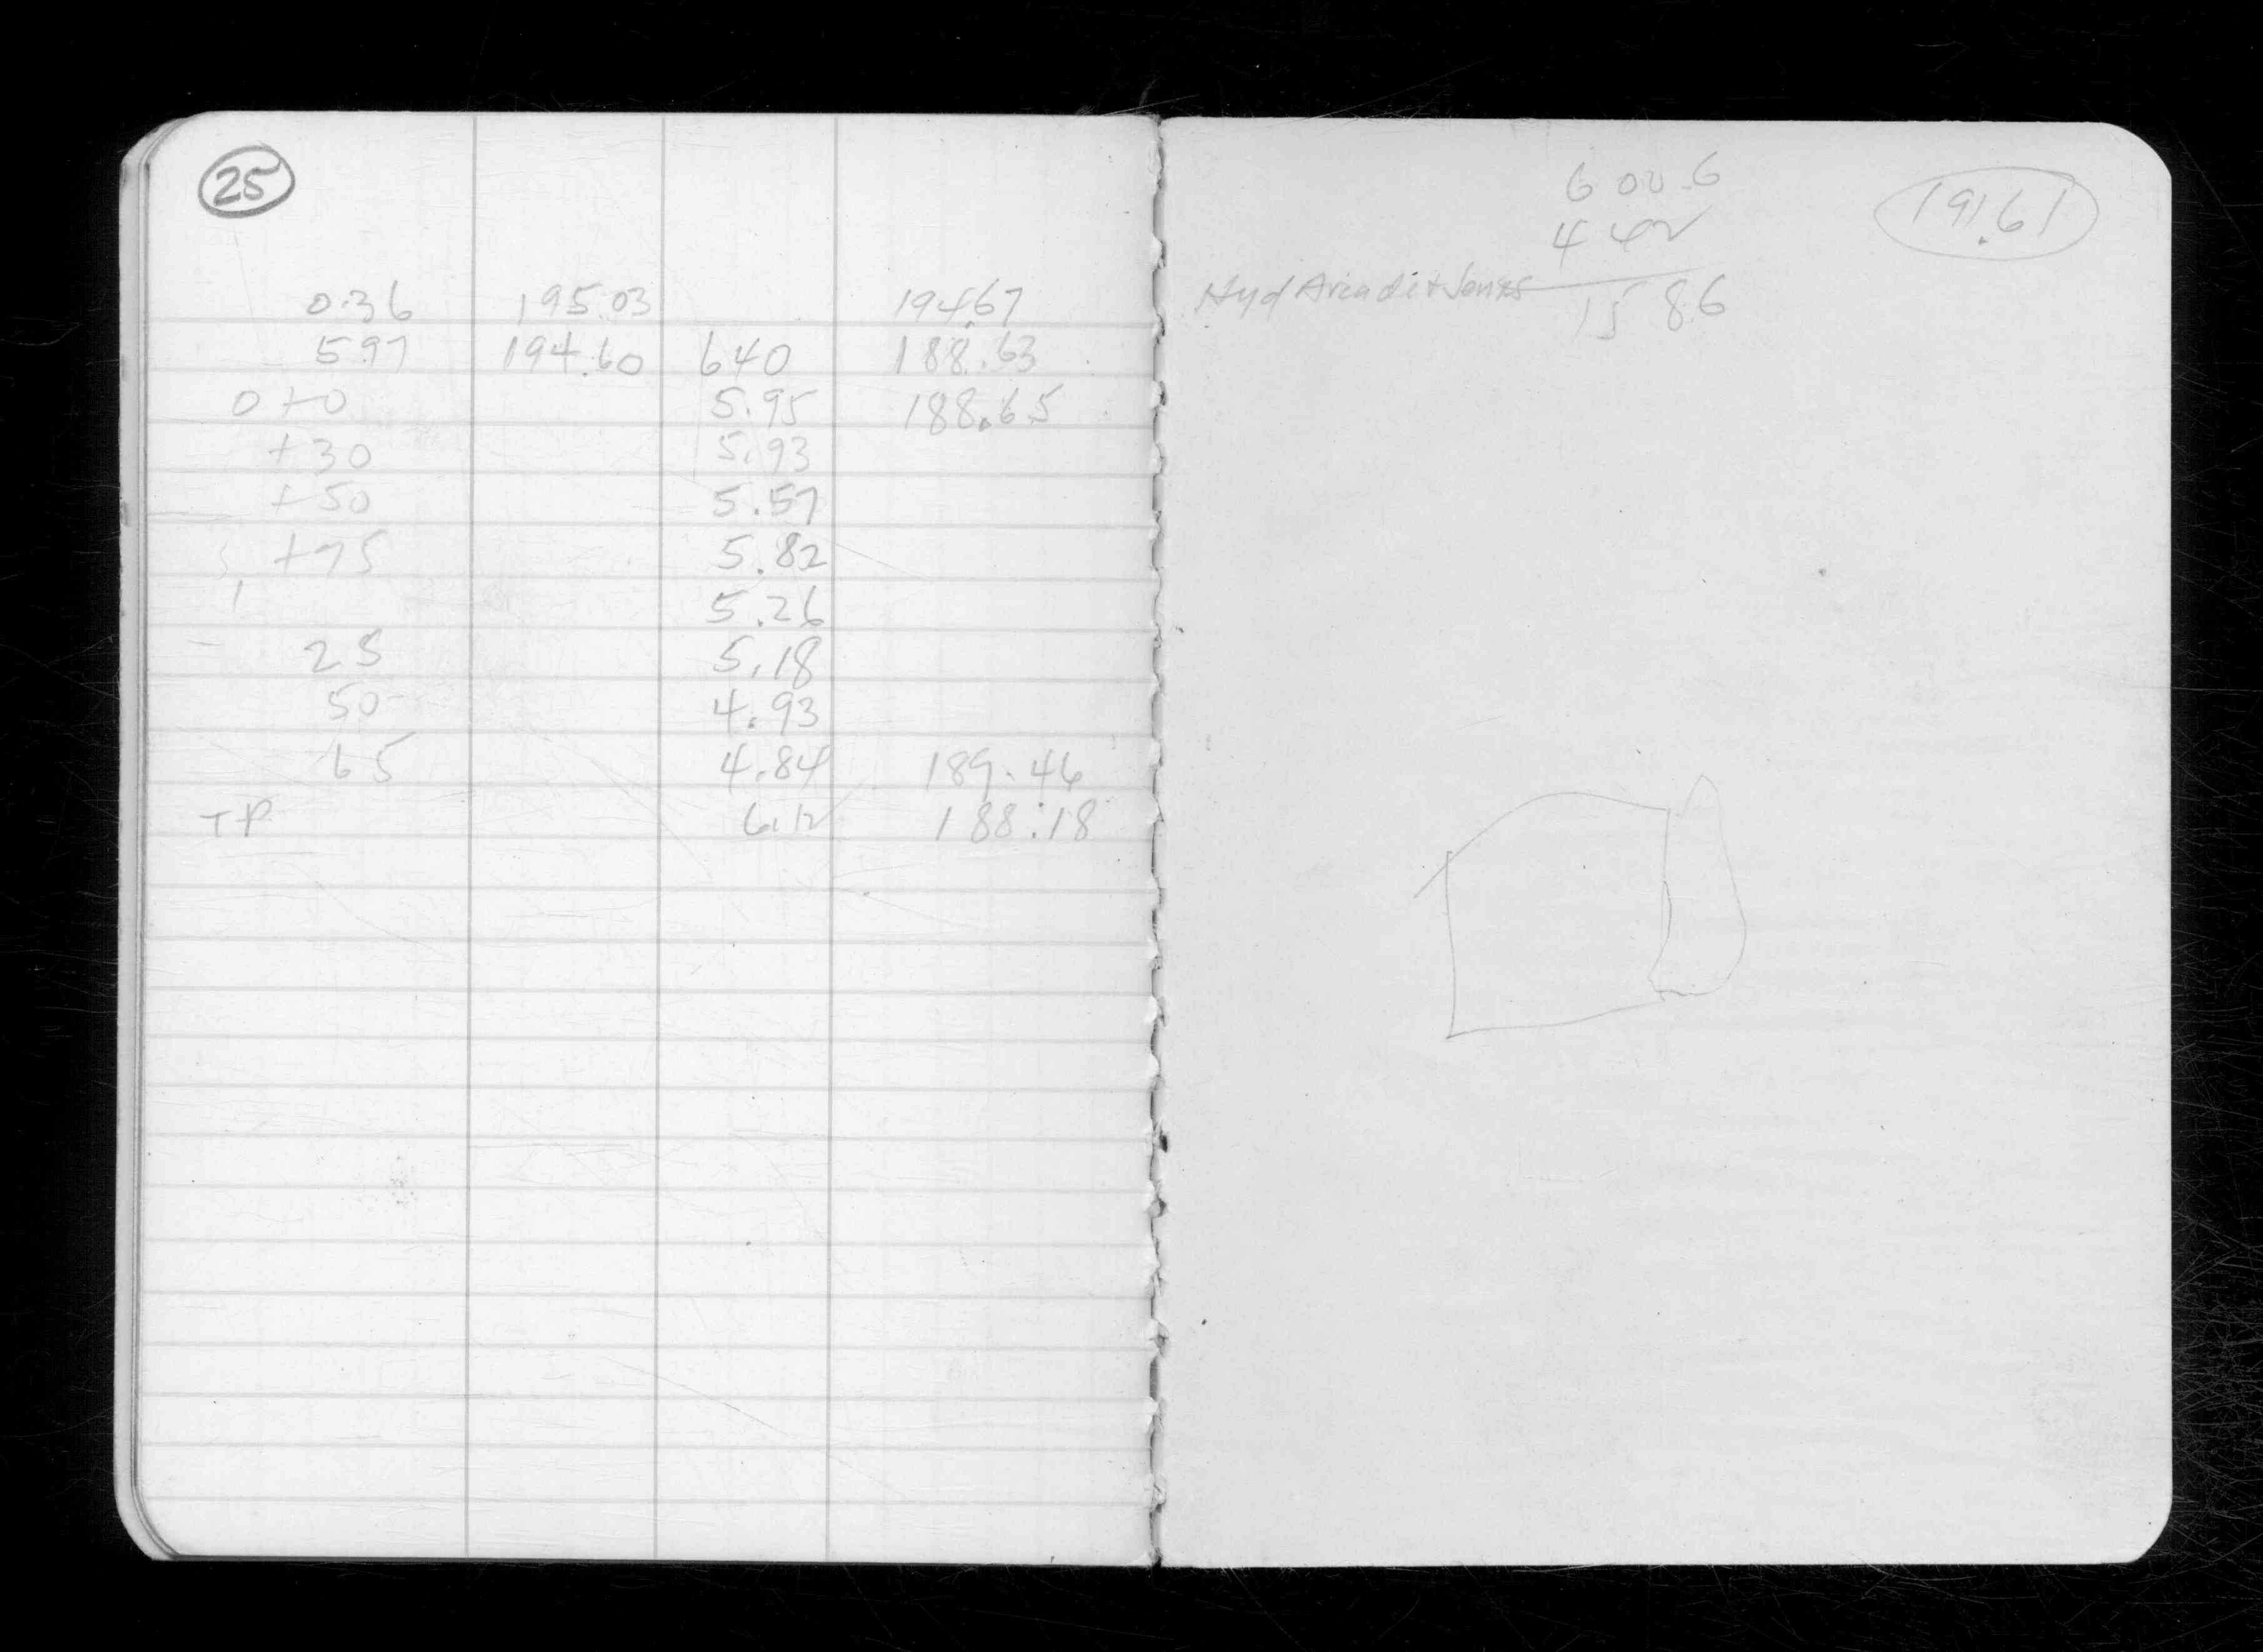 25
0.36 195.03 194.67
5.97 194.60 640 188.63
0+0 5.95 188.65
+30 5.93
+50 5.57
+75 5.82
1 5.26
25 5.18
50 4.93
65 4.84 189.46
TP 6.12 188.18
600.6
442
Hyd
1586
191.61